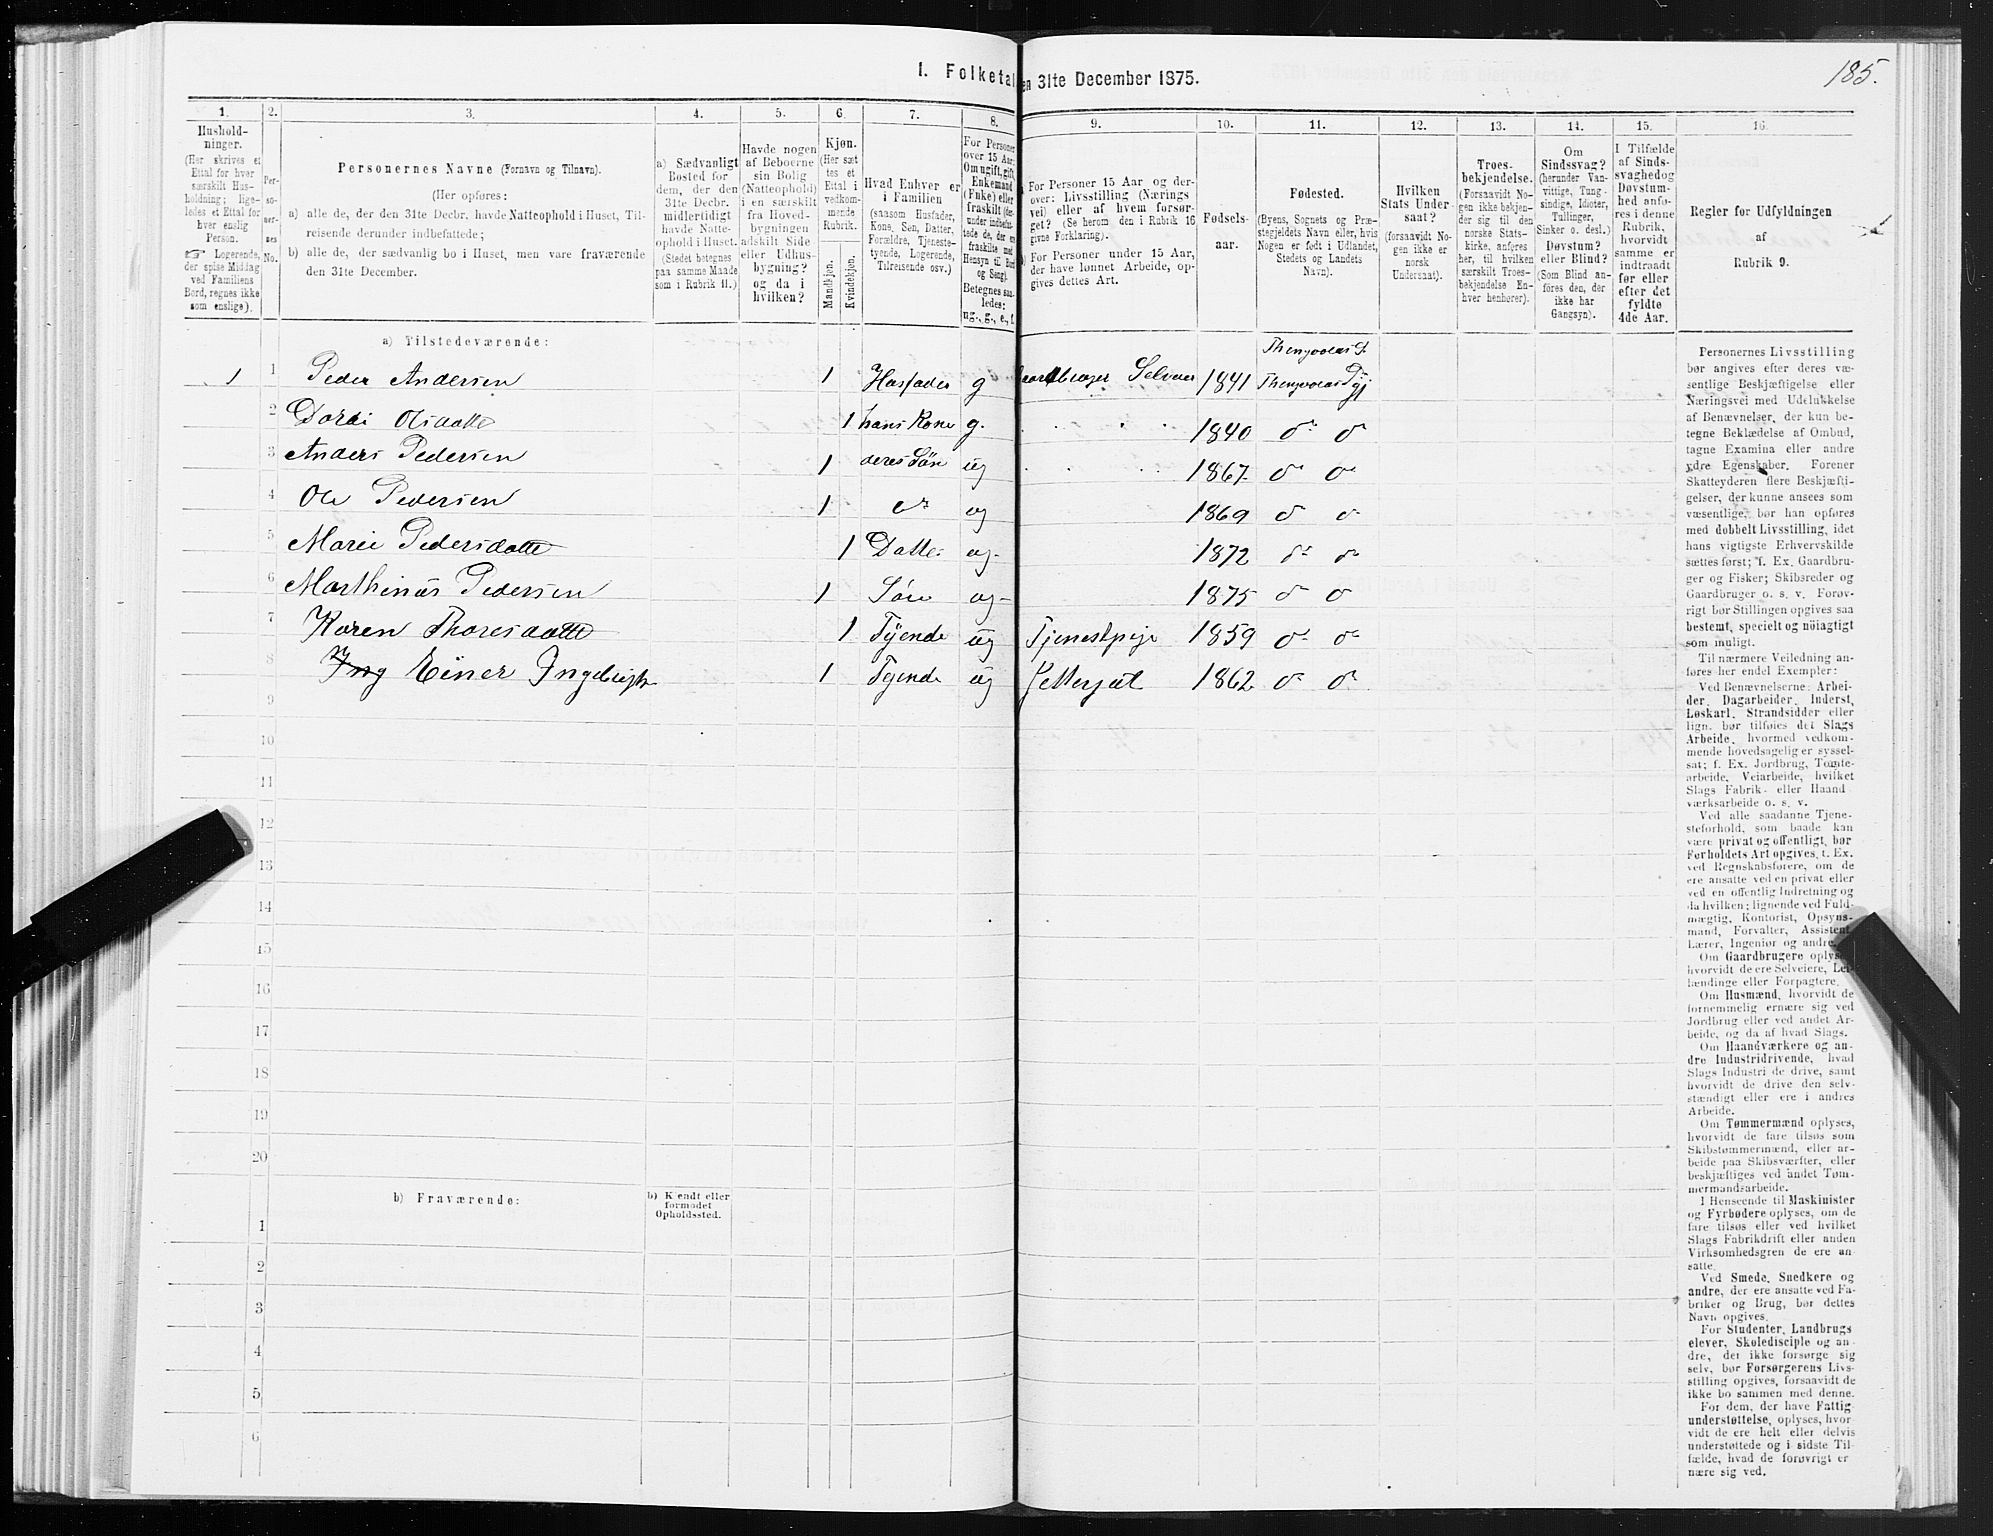 185.
I. Folketal
en 31te December 1875.
1. 2. 3. 4. 5. 6. 7. 8. 9. 10. 11. 12. 13. 14. 15. 16.
Hushold-
ninger.
(Her skrives et
Ettal for hver
særskilt Hus-
holdning; lige-
ledes et Ettal for
hver enslig
Person.
☞ Logerende,
der spise Middag
ved Familiens
Bord, regnes ikke
som enslige).
Per-
so-
ner-
nes
No.
Personernes Navne (Fornavn og Tilnavn).
(Her opføres:
a) alle de, der den 31te Decbr. havde Natteophold i Huset, Til-
reisende derunder indbefattede;
b) alle de, der sædvanlig bo i Huset, men vare fraværende
den 31te December.
a) Sædvanligt
Bosted for
dem, der den
31te Decbr.
midlertidigt
havde Natte-
ophold i Huset.
(Stedet betegnes
paa samme Maade
som i Rubrik 11.)
Havde nogen
af Beboerne
sin Bolig
(Natteophold)
i en særskilt
fra Hoved-
bygningen
adskilt Side
eller Udhus-
bygning?
og da i
hvilken?
Kjøn.
(Her sæt
tes et
Ettal i
vedkom-
mende
Rubrik.
Mandkjøn.
Kvindekjøn.
Hvad Enhver er
i Familien
(saasom Husfader,
Kone, Søn, Datter,
Forældre, Tjeneste-
tyende, Logerende,
Tilreisende osv.)
For Personer
over 15 Aar:
Om ugift, gift,
Enkemand
(Enke) eller
fraskilt (der-
under indbefat-
tede de, der er
fraskilte med
Hensyn til Bord
og Seng).
Betegnes saa-
ledes:
ug., g., e., f.
For Personer 15 Aar og der-
over: Livsstilling (Nærings
vei) eller af hvem forsør-
get? (Se herom den i Rubrik 16
givne Forklaring).
For Personer under 15 Aar,
der have lønnet Arbeide, op-
gives dettes Art.
Fødsels-
aar.
Fødested.
(Byens, Sognets og Præ-
stegjeldets Navn eller, hvis
Nogen er født i Udlandet,
Stedets og Landets
Navn).
Hvilken
Stats Under-
saat?
(forsaavidt No-
gen ikke er
norsk
Undersaat).
Troes-
bekjendelse.
(Forsaavidt No-
gen ikke bekjen-
der sig til den
norske Stats-
kirke, anføres
her, til hvilken
særskilt Troes-
bekjendelse En-
hver henhører).
Om
Sindssvag?
(herunder Van-
vittige, Tung-
sindige, Idioter,
Tullinger,
Sinker o. desl.)
Døvstum?
eller Blind?
(Som Blind an-
føres den, der
ikke har
Gangsyn).
I Tilfælde
af Sinds-
svaghed og
Døvstum-
hed anfø-
res i denne
Rubrik,
hvorvidt
samme er
indtraadt
før eller
efter det
fyldte
4de Aar.
Regler for Udfyldningen
af
Rubrik 9.
a) Tilstedeværende:
Thengvolds S.
1 1 Peder Andersen 1 Husfader g Gaardbruger Selveier 1841
2 Dordi Olsdatte 1 hans Kone g. 1840 do do
3 Anders Pedersen 1 deres Søn ug 1867 do do
4 Ole Pedersen 1 do ug 1869 do do
5 Marie Pedersdatte 1 Datter ug 1872 do do
6 Marthinus Pedersen 1 Søn ug 1875 do do
7 Karen Thoresdatte 1 Tyende ug 1859 do do
8 Ing Einer Ingebrigts 1 Tyende ug 1862 do do
9
10
11
12
13
14
15
16
17
18
19
20
b) Fraværende:
b) Kjendt eller
formodet
Opholdssted.
1
2
3
4
5
6
Personernes Livsstilling
bør angives efter deres væ-
sentlige Beskjæftigelse eller
Næringsvei med Udelukkelse
af Benævnelser, der kun be-
tegne Beklædelse af Ombud,
tagne Examina eller andre
ydre Egenskaber. Forener
Skatteyderen flere Beskjæfti-
gelser, der kunne ansees som
væsentlige, bør han opføres
med dobbelt Livsstilling, idet
hans vigtigste Erhvervskilde
sættes først; f. Ex. Gaardbru-
ger og Fisker; Skibsreder og
Gaardbruger o. s. v. Forøv-
rigt bør Stillingen opgives saa
bestemt, specielt og nöiagtigt
som muligt.
Til nærmere Veiledning an-
føres her endel Exempler:
Ved Benævnelserne: Arbei-
der, Dagarbeider, Inderst,
Løskarl, Strandsidder eller
lign. bør tilføies det Slags
Arbeide, hvormed vedkom-
mende hovedsagelig er syssel-
sat; f. Ex. Jordbrug, Tomte-
arbeide, Veiarbeide, hvilket
Slags Fabrik- eller Haand-
værksarbeide o. s. v.
Ved alle saadanne Tjene-
steforhold, som baade kan
være privat og offentligt, bør
Forholdets Art opgives, t. Ex.
ved Regnskabsførere, om de
ere ansatte ved en privat eller
ved en offentlig Indretning og
da hvilken; lignende ved Fuld-
mægtig, Kontorist, Opsyns-
mand, Forvalter, Assistent
Lærer, Ingeniør og andre.
Om Gaardbrugere oplyse
hvorvidt de ere Selveiere, Lei-
lændinge eller Forpagtere.
Om Husmænd, hvorvidt de
fornemmelig ernære sig ved
Jordbrug eller ved andet Ar-
beide, og da af hvad Slags.
Om Haandværkere og an-
dre Industridrivende, hvad
Slags Industri de drive, samt
hvorvidt de drive den selv-
stændigt eller ere i andres
Arbeide.
Om Tømmermænd oplyses,
hvorvidt de fare tilsøs som
Skibstømmermænd, eller ar-
beide paa Skibsværfter, eller
beskjæftiges ved andet Tøm-
mermandsarbeide.
I Henseende til Maskinister
og Fyrbødere oplyses, om de
fare tilsøs eller ved hvilket
Slags Fabrikdrift eller anden
Virksomhedsgren de ere an-
satte.
Ved Smede, Snedkere og
andre, der ere ansatte ved Fa-
briker og Brug, bør dettes
Navn opgives.
For Studenter, Landbrugs
elever, Skoledisciple og an-
dre, det ikke forsørge sig
selv, bør Forsørgerens Livs-
stilling opgives, forsaavidt de
ikke bo sammen med denne.
For dem, der have Fattig-
understøttelse, oplyses, hvor-
vidt de ere helt eller delvis
understøttede og i sidste Til-
fælde, hvad de forøvrigt er
nære sig ved.